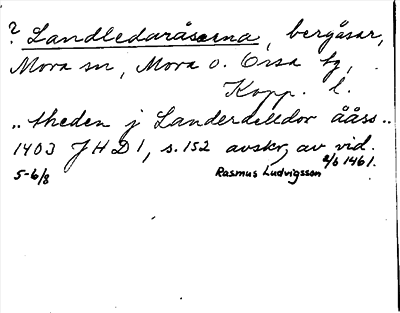 ? Landledaråserna, bergåsar,
Mora sn, Mora o. Orsa tg,
Kopp. l.
.. theden j Landerdelldor ååss ..
1403 JHD 1, s. 152 avskr. av vid.
5-6/8 Rasmus Ludvigsson 1461.